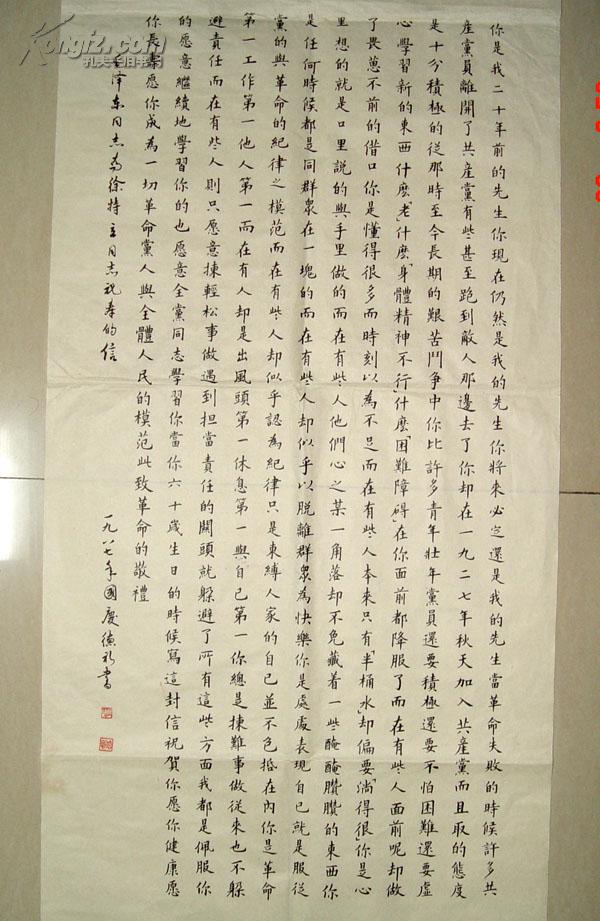 你是我二十年前的先生你現在仍然是我的先生你將來必定還是我的先生當革命失敗的時候許多共
産黨員離開了共産黨有些甚至跑到敵人那邊去了你却在一九二七年秋天加入共産黨而且取的態度
是十分積極的從那時至今長期的艱苦鬥爭中你比許多青年壯年黨員還要積極還要不怕困難還要虛
心學習新的東西什麽「老」什麽「身體精神不行」什麽「困難障碍」在你面前都降服了而在有些人面前呢却做
了畏葸不前的借口你是懂得很多而時刻以為不足而在有些人本來只有「半桶水」却偏要「淌得很」你是心
里想的就是口里説的與手里做的而在有些人他們心之某一角落却不免藏着一些醃醃臢臢的東西你
是任何時候都是同群衆在一塊的而在有些人却似乎以脱離群衆為快樂你是處處表現自己就是服從
黨的與革命的紀律之模范而在有些人却似乎認為紀律只是束縛人家的自己並不包括在內你是革命
第一工作第一他人第一而在有人却是出風頭第一休息第一與自己第一你總是揀難事做從來也不躲
避責任而在有些人則只愿意揀輕松事做遇到担當責任的關頭就躲避了所有這些方面我都是佩服你
的愿意繼續地學習你的也愿意全黨同志學習你當你六十歲生日的時候寫這封信祝賀你愿你健康愿
你長壽愿你成為一切革命黨人與全體人民的模范此致革命的敬禮
毛澤东同志為徐特立同志祝寿的信
一九八七年國慶德書
Kongfz.com
孔夫子旧书网